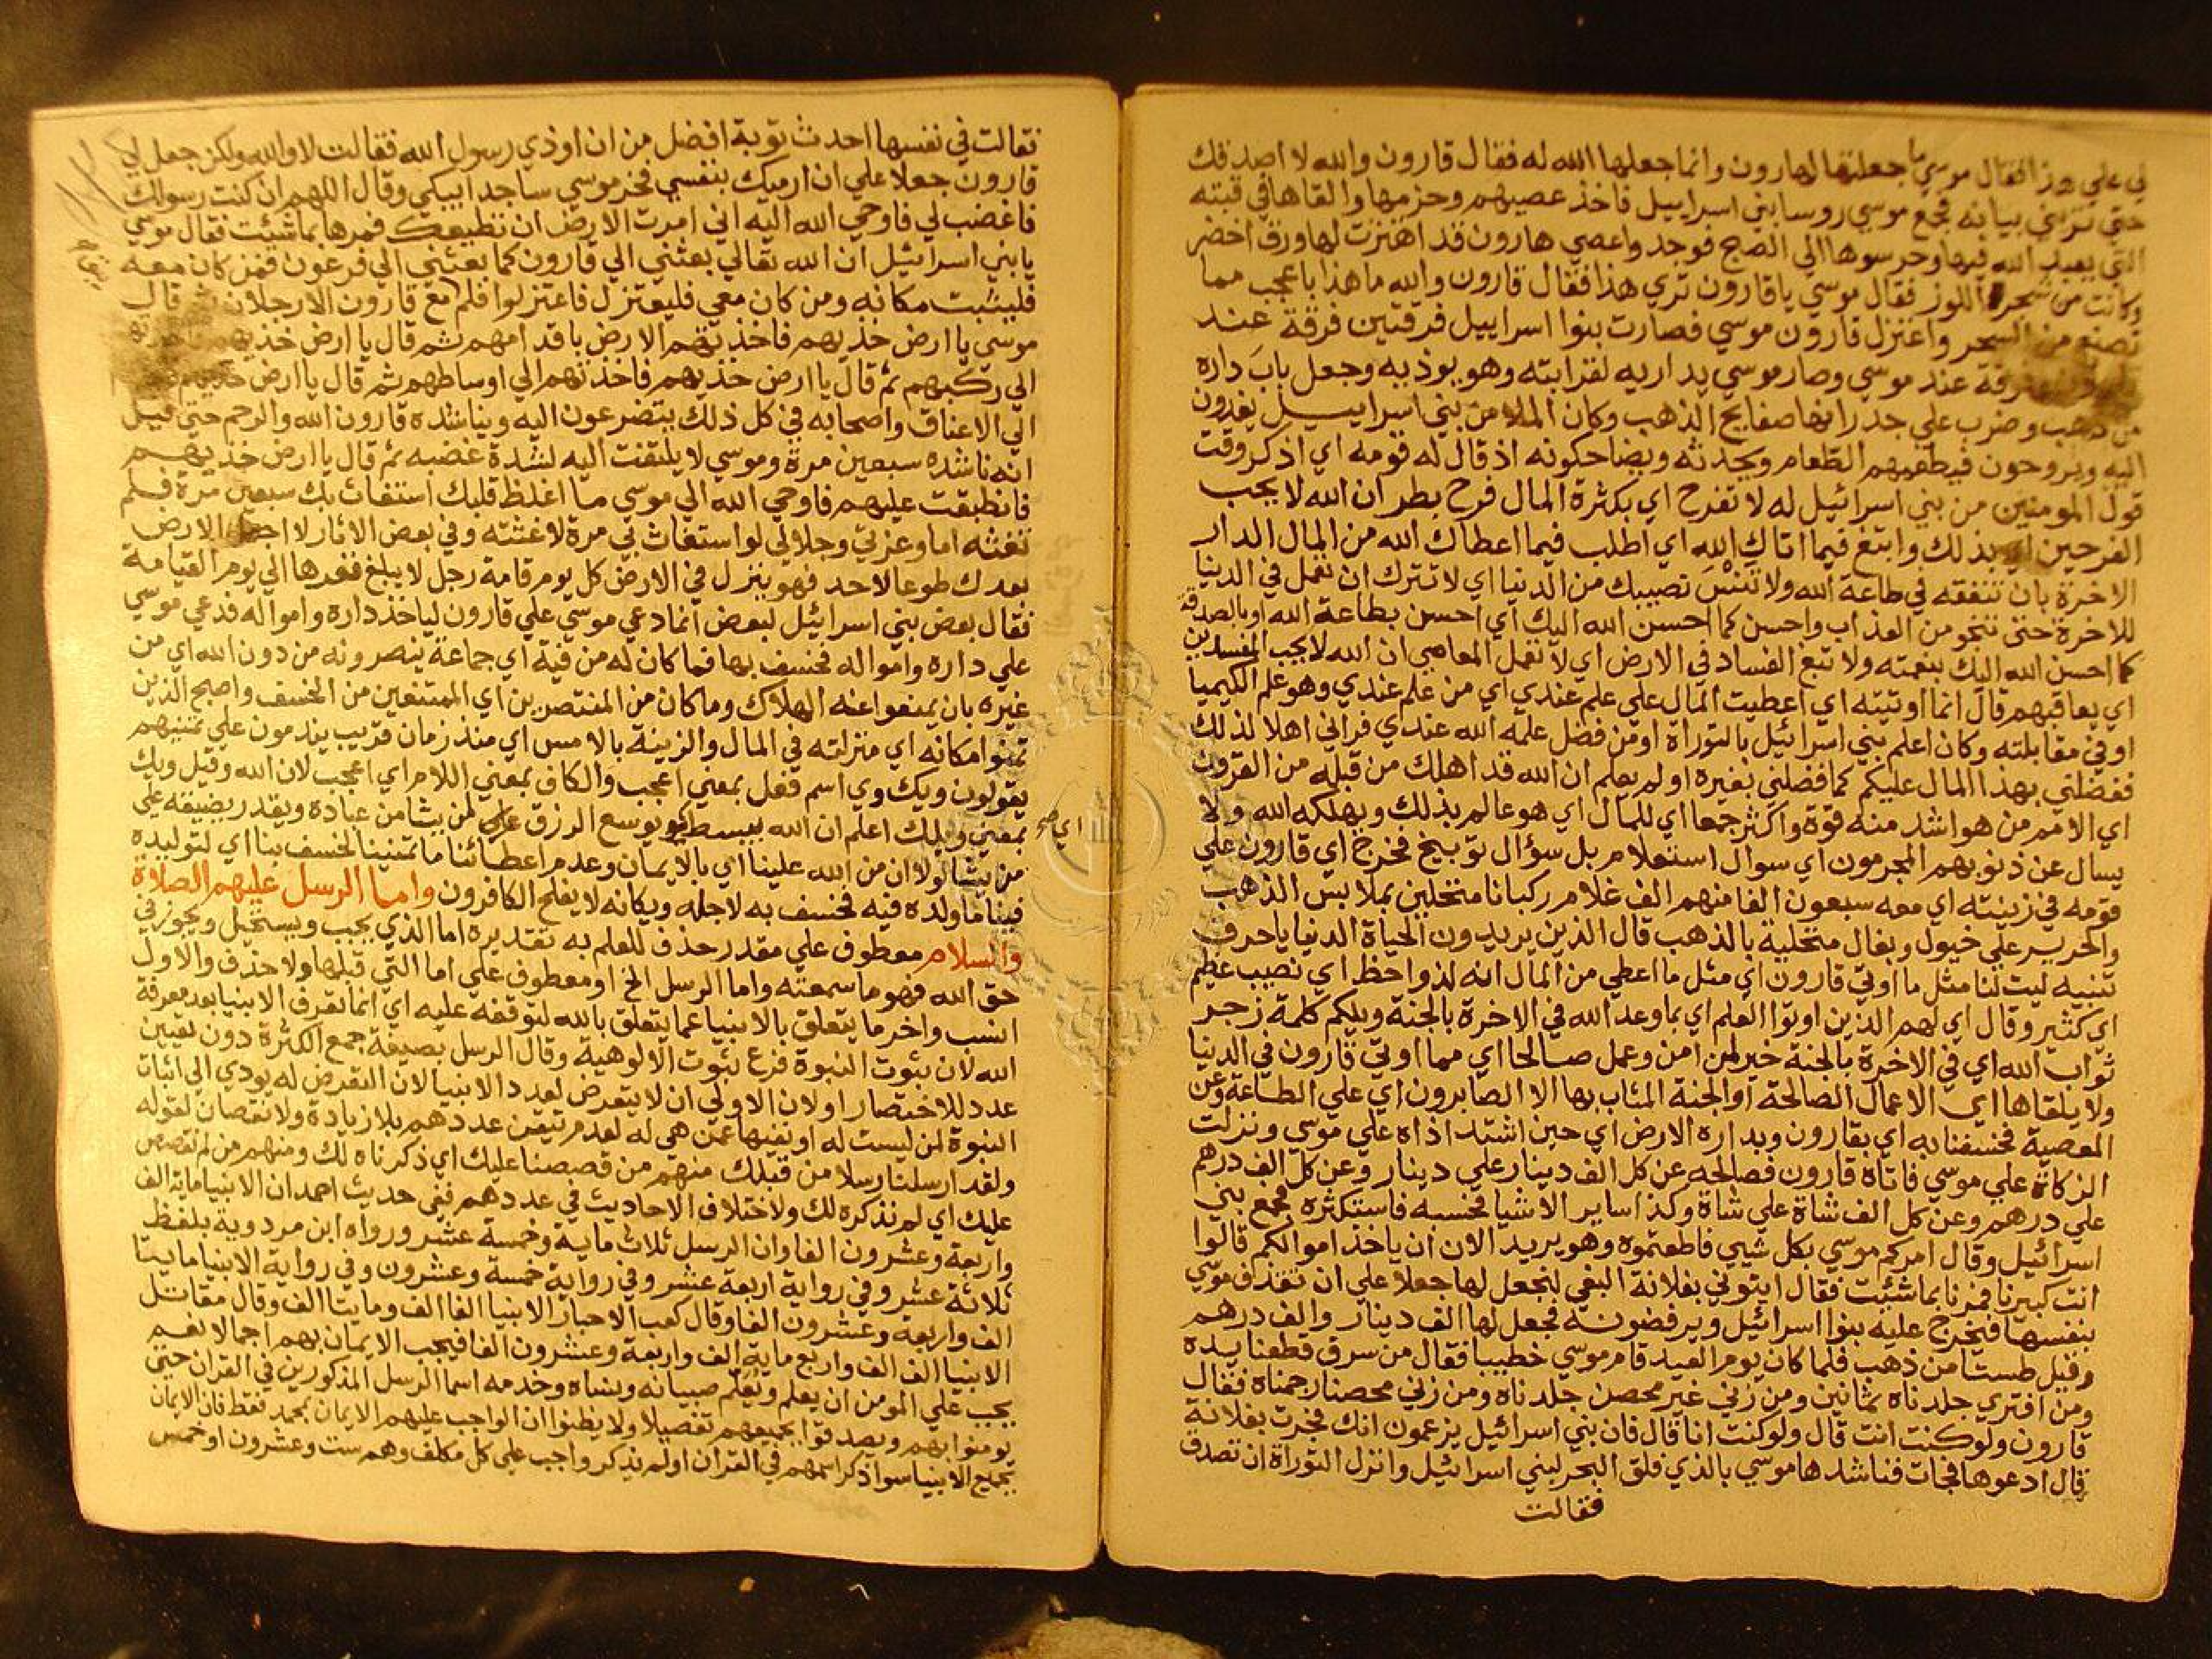 لي علي هذا فقال موسي ما جعلتها لهارون وانما جعلها الله له فقال قارون والله لا اصدقك
حتي تريني بيانه فجمع موسي روسا بني اسراييل فاخذ عصيهم وحزمها والقاها في قبته
التي يعبد الله فيها وحرسوها الي الصبح فوجد واعصي هارون قد اهتزت لها ورق اخضر
وكانت من شجر اللوز فقال موسي يا قارون تري هذا فقال قارون والله ما هذا باعجب مما
تصنع من السحر واعتزل قارون موسي فصارت بنوا اسراييل فرقتين فرقة عند
وفرقة عند موسي وصار موسي يداريه لقرابته وهو يوذيه وجعل باب داره
من ذهب وضرب علي جدرانها صفايح الذهب وكان الملا من بني اسراييل يغدون
اليه ويروحون فيطعمهم الطعام ويحدثه ويضاحكونه اذ قال له قومه اي اذكر وقت
قول المومنين من بني اسرائيل له لا تفرح اي بكثرة المال فرح بطر ان الله لا يحب
الفرحين اي بذلك وابتغ فيما اتاك الله اي اطلب فيما اعطاك الله من المال الدار
الاخرة بان تنفقه في طاعة الله ولا تنس نصيبك من الدنيا اي لا تترك ان تعمل في الدنيا
للاخرة حتي تنجو من العذاب واحسن كما احسن الله اليك اي احسن بطاعة الله او بالصدقة
كما احسن الله اليك بنعمته ولا تبغ الفساد في الارض اي لا تعمل المعاصي ان الله لا يحب المفسدين
اي يعاقبهم قال انما اوتيته اي اعطيت المال علي علم عندي اي من علم عندي وهو علم الكيميا
او في مقابلته وكان اعلم بني اسرائيل بالتوراة او من فضل علمه الله عندي فراني اهلا لذلك
ففضلني بهذا المال عليكم كما فضلني بغيره اولم يعلم ان الله قد اهلك من قبله من القرون
اي الامم من هو اشد منه قوة واكثر جمعا اي للمال اي هو عالم بذلك ويهلكه الله ولا
يسال عن ذنوبهم المجرمون اي سوال استعلام بل سؤال توبيخ فخرج اي قارون علي
قومه في زينته اي معه سبعون الفا منهم الف غلام ركبانا متحلين بملابس الذهب
والحرير علي خيول وبغال متحلية بالذهب قال الذين يريدون الحياة الدنيا يا حرف
تنبيه ليت لنا مثل ما اوتي قارون اي مثل ما اعطي من المال انه لذو حظ اي نصيب عظيم
اي كثير وقال اي لهم الذين اوتوا العلم اي بما وعد الله في الاخرة بالجنة ويلكم كلمة زجر
ثواب الله اي في الاخرة بالجنة خير لمن امن وعمل صالحا اي مما اوتي قارون في الدنيا
ولا يلقاها اي الاعمال الصالحة او الجنة المثاب بها الا الصابرون اي علي الطاعة وعن
المعصية فخسفنا به اي بقارون وبداره الارض اي حين اشتد اذاه علي موسي ونزلت
الزكاة علي موسي فاتاه قارون فصالحه عن كل الف دينار علي دينار وعن كل الف درهم
علي درهم وعن كل الف شاة علي شاة وكذا ساير الاشيا فحسبه فاستكثره فجمع بني
اسرائيل وقال امركم موسي بكل شيي فاطعتموه وهو يريد الان ان ياخذ اموالكم قالوا
انت كبيرنا فمرنا بما شئت فقال ايتوني بفلانة البغي لنجعل لها جعلا علي ان تقذف موسي
بنفسها فيخرج عليه بنوا اسرائيل ويرفضونه فجعل لها الف دينار والف درهم
وقيل طستا من ذهب فلما كان يوم العيد قام موسي خطيبا فقال من سرق قطعنا يده
ومن افتري جلدناه ثمانين ومن زني غير محصن جلدناه ومن زني محصنا رجمناه فقال
قارون ولو كنت انت قال ولو كنت انا قال فان بني اسرائيل يزعمون انك فجرت بفلانة
قال ادعوها فجات فناشدها موسي بالذي فلق البحر لبني اسرائيل وانزل التوراة ان تصدق
فقالت
فقالت في نفسها احدث توبة افضل من ان اوذي رسول الله فقالت لا والله ولكن جعل لي
قارون جعلا علي ان ارميك بنفسي فخر موسي ساجدا يبكي وقال اللهم ان كنت رسولك
فاغضب لي فاوحي الله اليه اني امرت الارض ان تطيعك فمرها بما شئت فقال موسي
يا بني اسرائيل ان الله تعالي بعثني الي قارون كما بعثني الي فرعون فمن كان معه
فليثبت مكانه ومن كان معي فليعتزل فاعتزلوا فلم مع قارون الا رجلان ثم قال
موسي يا ارض خذيهم فاخذتهم الارض باقدامهم ثم قال يا ارض خذيهم
الي ركبهم ثم قال يا ارض خذيهم فاخذتهم الي اوساطهم ثم قال يا ارض خذيهم
الي الاعناق واصحابه في كل ذلك يتضرعون اليه ويناشده قارون الله والرحم حتي قيل
انه ناشده سبعين مرة وموسي لا يلتفت اليه لشدة غضبه ثم قال يا ارض خذيهم
فانطبقت عليهم فاوحي الله الي موسي ما اغلظ قلبك استغاث بك سبعين مرة فلم
تغثه اما وعزتي وجلالي لو استغاث بي مرة لاغثته وفي بعض الاثار لا اجعل الارض
بعدك طوعا لاحد فهو ينزل في الارض كل يوم قامة رجل لا يبلغ قعرها الي يوم القيامة
فقال بعض بني اسرائيل لبعض انما دعي موسي علي قارون لياخذ داره وامواله فدعي موسي
علي داره وامواله فخسف بها فما كان له من فية اي جماعة ينصرونه من دون الله اي من
غيره بان يمنعوا عنه الهلاك وما كان من المنتصرين اي الممتنعين من الخسف واصبح الذين
تمنوا مكانه اي منزلته في المال والزينة بالامس اي منذ زمان قريب يندمون علي تمنيهم
يقولون ويك وي اسم فعل بمعني اعجب والكاف بمعني اللام اي اعجب لان الله وقيل ويك
بمعني ويلك اعلم ان الله يبسط يوسع الرزق لمن يشا من عباده ويقدر يضيقه علي
من يشا لولا ان من الله علينا اي بالايمان وعدم اعطائنا ما تمنينا لخسف بنا اي لتوليده
فينا ما ولده فيه فخسف به لاجله ويكانه لا يفلح الكافرون واما الرسل عليهم الصلاة
والسلام معطوف علي مقدر حذف للعلم به تقديره اما الذي يجب ويستحيل ويجوز في
حق الله فهو ما سمعته واما الرسل الخ او معطوف علي اما التي قبلها ولا حذف والاول
انسب واخر ما يتعلق بالانبيا عما يتعلق بالله لتوقفه عليه اي انما تعرف الانبيا بعد معرفة
الله لان ثبوت النبوة فرع ثبوت الالوهية وقال الرسل بصيغة جمع الكثرة دون تعيين
عدد للاختصار او لان الاولي ان لا يتعرض لعدد الانبيا لان التعرض له يودي الي اثبات
النبوة لمن ليست له او نفيها عمن هي له لعدم تيقن عددهم بلا زيادة ولا نقصان لقوله
ولقد ارسلنا رسلا من قبلك منهم من قصصنا عليك اي ذكرناه لك ومنهم من لم نقصص
عليك اي لم نذكره لك ولاختلاف الاحاديث في عددهم ففي حديث احمد ان الانبيا ماية الف
واربعة وعشرون الفا وان الرسل ثلاث ماية وخمسة عشر ورواه ابن مردوية بلفظ
ثلاثة عشر وفي رواية اربعة عشر وفي رواية خمسة وعشرون وفي رواية الانبيا مايتا
الف واربعة وعشرون الفا وقال كعب الاحبار الانبيا الفا الف ومايتا الف وقال مقاتل
الانبيا الف الف واربع ماية الف واربعة وعشرون الفا فيجب الايمان بهم اجمالا نعم
يجب علي المومن ان يعلم ويعلم صبيانه ونساه وخدمه اسما الرسل المذكورين في القران حتي
يومنوا بهم ويصدقوا بجميعهم تفصيلا ولا يظنوا ان الواجب عليهم الايمان بمحمد فقط فان الايمان
بجميع الانبيا سوا ذكر اسمهم في القران او لم يذكر واجب علي كل مكلف وهم ست وعشرون او خمس
اي صح